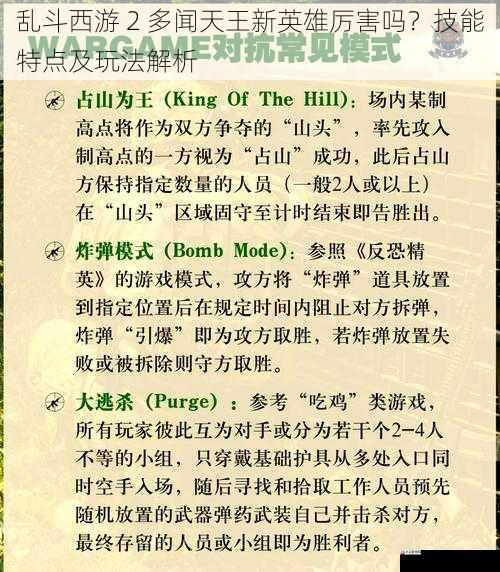 乱斗西游 2 多闻天王新英雄厉害吗？技能
特点及玩法解析
WARGAME对抗常见模式
占山为王 (King Of The Hill)：场内某制
高点将作为双方争夺的“山头”，率先攻入
制高点的一方视为“占山”成功，此后占山
方保持指定数量的人员（一般2人或以上）
在“山头”区域固守至计时结束即告胜出。
炸弹模式 (Bomb Mode)：参照《反恐精
英》的游戏模式，攻方将“炸弹”道具放置
到指定位置后在规定时间内阻止对方拆弹，
炸弹“引爆”即为攻方取胜，若炸弹放置失
败或被拆除则守方取胜。
大逃杀 (Purge)：参考“吃鸡”类游戏，
所有玩家彼此互为对手或分为若干个2—4人
不等的小组，只穿戴基础护具从多处入口同
时空手入场，随后寻找和拾取工作人员预先
随机放置的武器弹药武装自己并击杀对方，
最终存留的人员或小组即为胜利者。